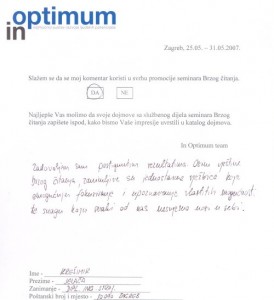 in optimum
Zagreb, 25.05. - 31.05.2007.
Slažem se da se moj komentar koristi u svrhu promocije seminara Brzog čitanja.
DA NE
Najljepše Vas molimo da svoje dojmove sa službenog dijela seminara Brzog
čitanja zapišete ispod, kako bismo Vaše impresije uvrstili u katalog dojmova.
In Optimum team
Zadovoljan sam postignutim rezultatima. Osim vještine
brzog čitanja, zanimljive su jednostavne vježbice koje
omogućuju fokusiranje i upoznavanje vlastitih mogućnosti
koji svaki od nas u sebi.
Ime -
Prezime -
Zanimanje -
Poštanski broj i mjesto - 10000 ZAGREB